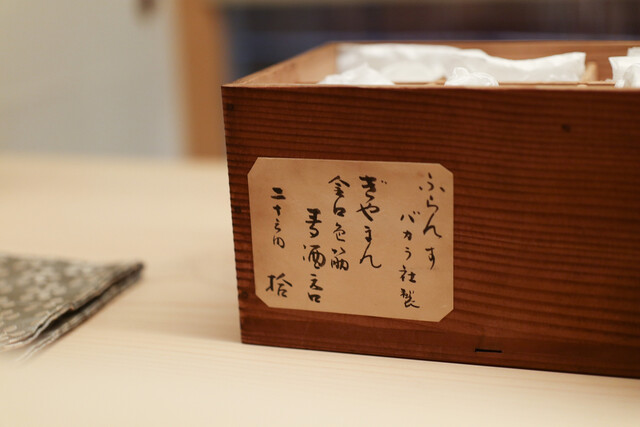 ふらんす
バカラ社製
ぎやまん
金口色筋
酒
二十之内 拾